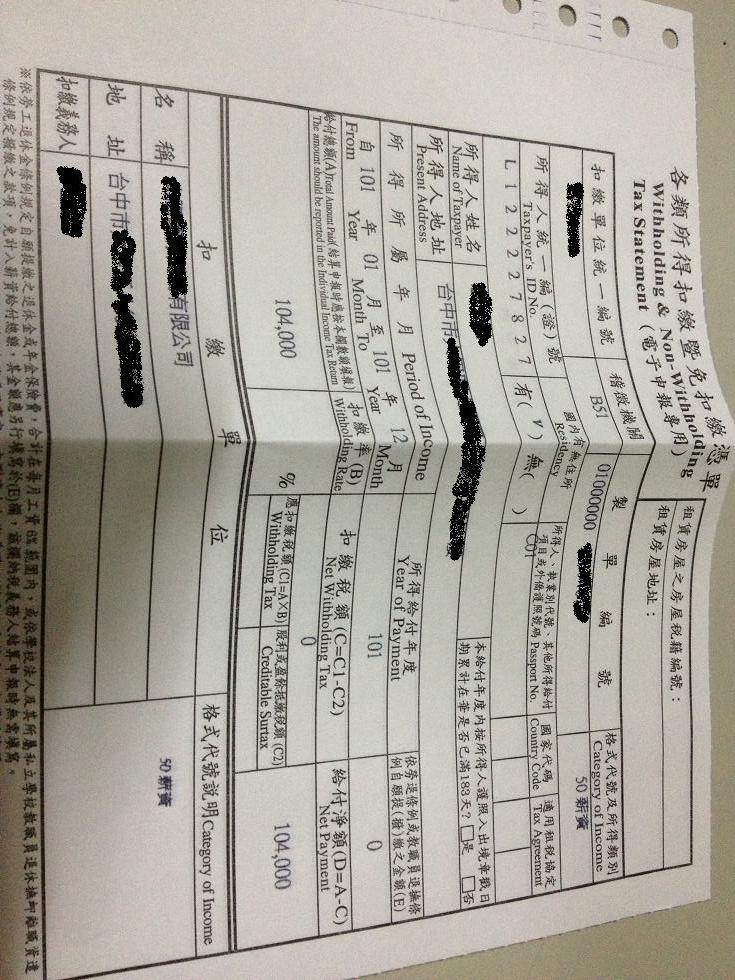 各類所得扣繳暨免扣繳憑單
Withholding & Non-Withholding
Tax Statement (電子申報專用)
租賃房屋之房屋稅籍編號：
租賃房屋地址：
扣繳單位統一編號 稽徵機關 製單編號 格式代號及所得類別
Category of Income
B51 01000000 50 薪資
所得人統一編(證)號
Taxpayer's ID No.
國內有無住所
Residency
所得人、執業別代號、其他所得給付
項目或外僑護照號碼 Passport No.
國家代碼
Country Code
適用租稅協定
Tax Agreement
L 1 2 2 2 2 7 8 2 7 有( V ) 無( ) C01
所得人姓名
Name of Taxpayer
本給付年度內按所得人護照入出境章戳日
期累計在華是否已滿183天？ □是 □否
所得人地址
Present Address
台中市
所得所屬年月 Period of Income
所得給付年度
Year of Payment
依勞退條例或教職員退撫條
例自願提(撥)繳之金額(E)
自 101 年 01 月 至 101 年 12 月
From Year Month To Year Month
101 0
給付總額(A)Total Amount Paid(結算申報時應按本欄數額填報)
The amount should be reported in the Individual Income Tax Return
扣繳率(B)
Withholding Rate
扣繳稅額(C=C1-C2)
Net Withholding Tax
給付淨額(D=A-C)
Net Payment
0
104,000 % 104,000
應扣繳稅額(C1=A×B)
Withholding Tax
股利或盈餘抵繳稅額(C2)
Creditable Surtax
扣繳單位 格式代號說明Category of Income
名稱 有限公司 50薪資
地址 台中市
扣繳義務人
※依勞工退休金條例規定自願提繳之退休金或年金保險費，合計在每月工資6%範圍內，或依學校法人及其所屬私立學校教職員退休撫卹離職資遣
條例規定撥繳之款項，免計入薪資給付總額，其金額應另行填寫於(E)欄，該欄納稅義務人結算申報時無需填寫。